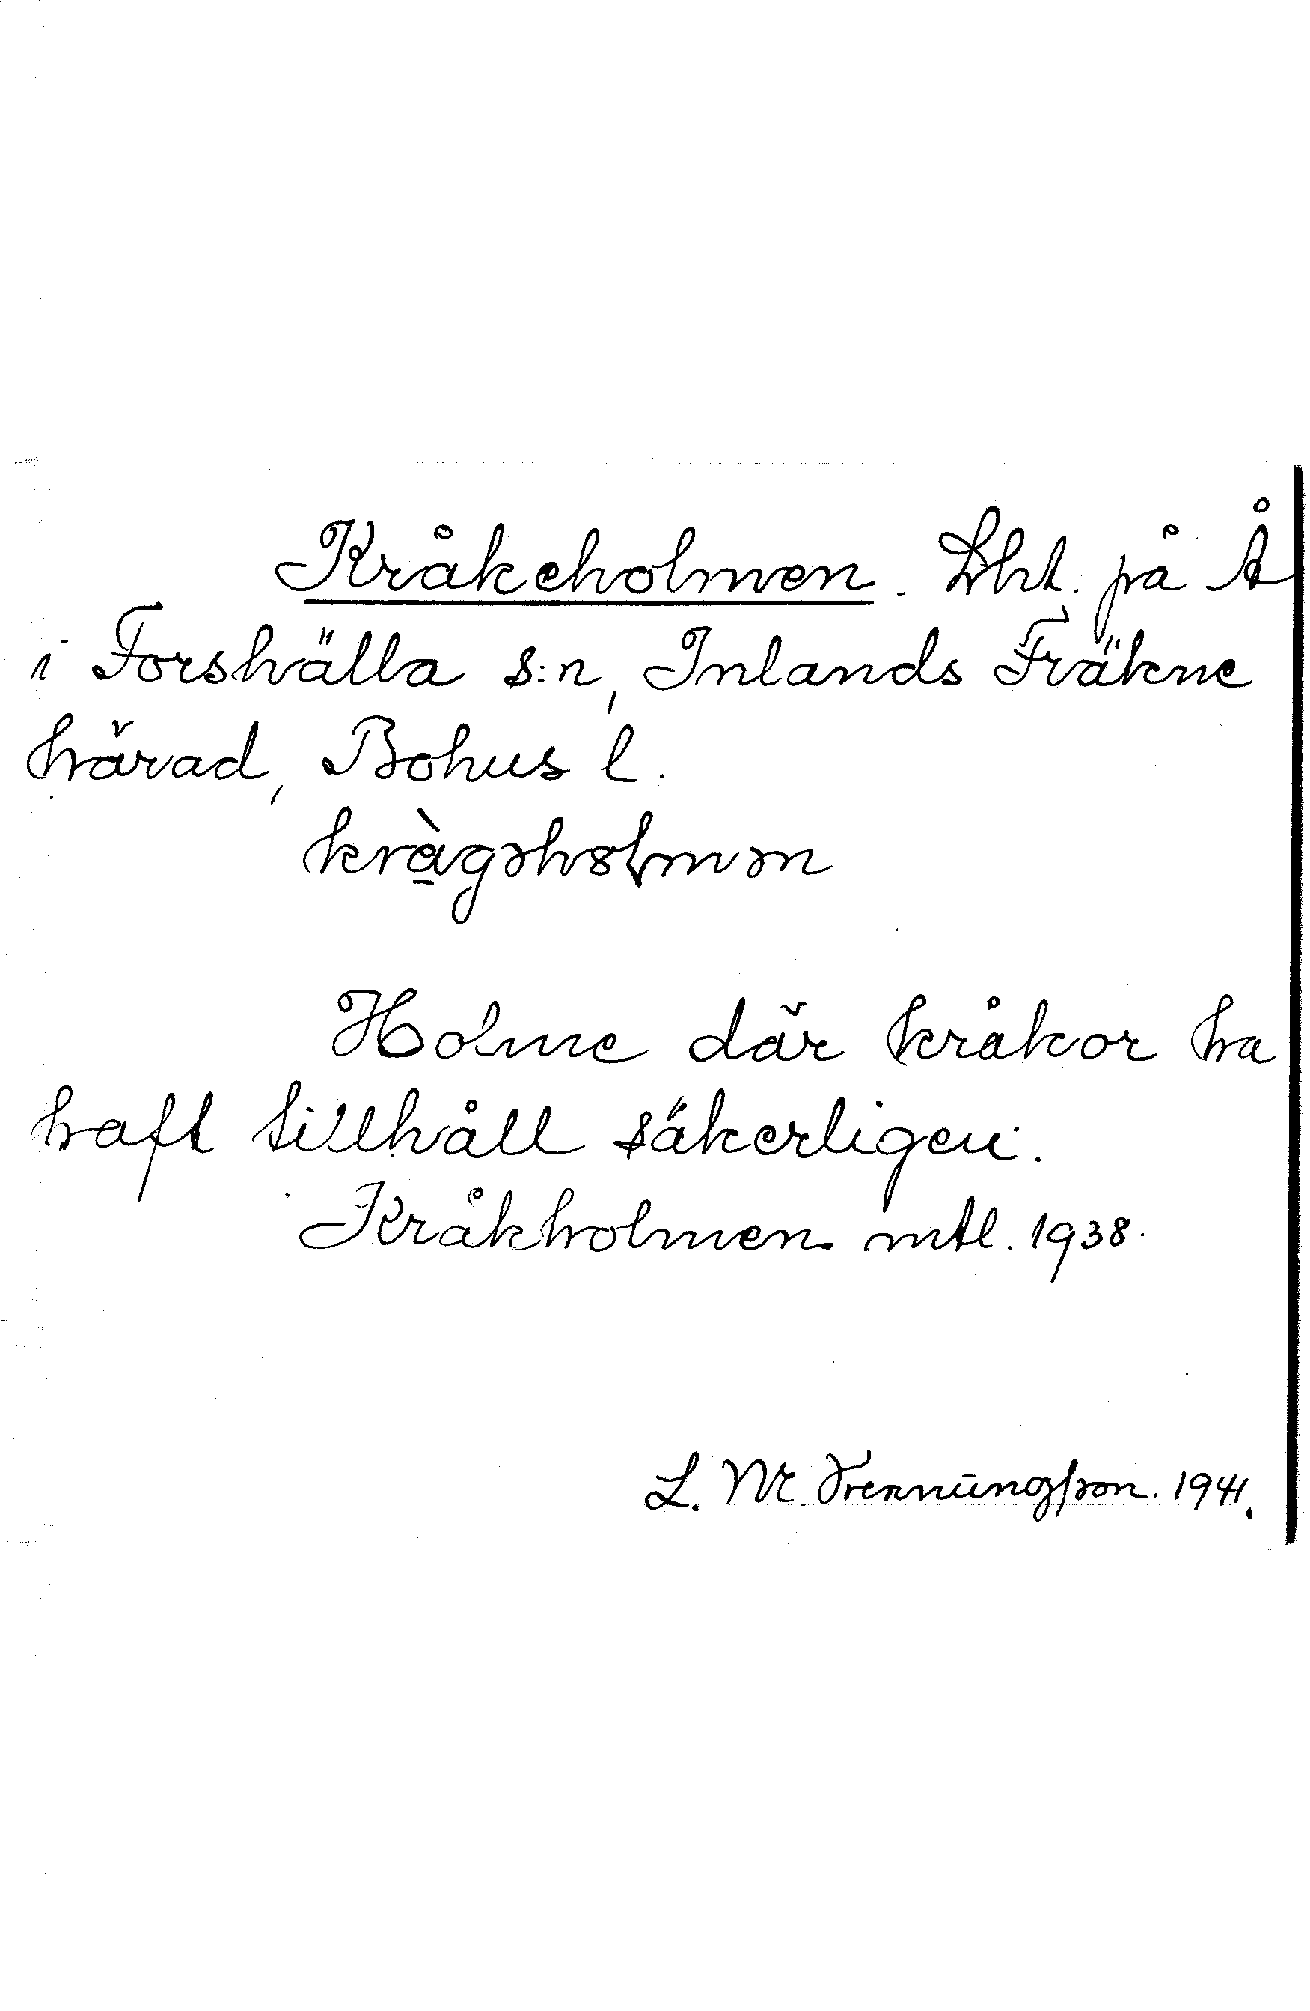 Kråkeholmen. Lht. på Å
i Forshälla s:n, Inlands Fräkne
härad, Bohus l.
kràgəhoɫmən
Holme där kråkor ha
haft tillhåll säkerligen.
Kråkholmen mtl. 1938.
L. M. Svenningsson. 1941.